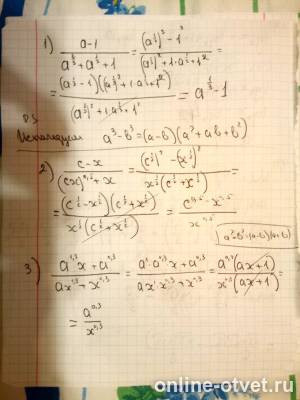 1) (a-1)/(a^(2/3)+a^(1/3)+1) = ((a^(1/3))^3-1^3)/((a^(1/3))^2+1·a^(1/3)+1^2) =
= ((a^(1/3)-1)((a^(1/3))^2+1·a^(1/3)+1^2))/((a^(1/3))^2+1·a^(1/3)+1^2) = a^(1/3)-1
a^3-b^3=(a-b)(a^2+ab+b^2)
2) (c-x)/((cx)^(0,5)+x) = ((c^(1/2))^2-(x^(1/2))^2)/(x^(1/2)(c^(1/2)+x^(1/2))) =
= ((c^(1/2)-x^(1/2))(c^(1/2)+x^(1/2)))/(x^(1/2)(c^(1/2)+x^(1/2))) = (c^(0,5)-x^(0,5))/x^(0,5)
a^2-b^2=(a-b)(a+b)
3) (a^(1,3)x+a^(0,3))/(ax^(1,3)+x^(0,3)) = (a^1·a^(0,3)x+a^(0,3))/(ax^1·x^(0,3)+x^(0,3)) = (a^(0,3)(ax+1))/(x^(0,3)(ax+1)) =
= a^(0,3)/x^(0,3)
online-otvet.ru